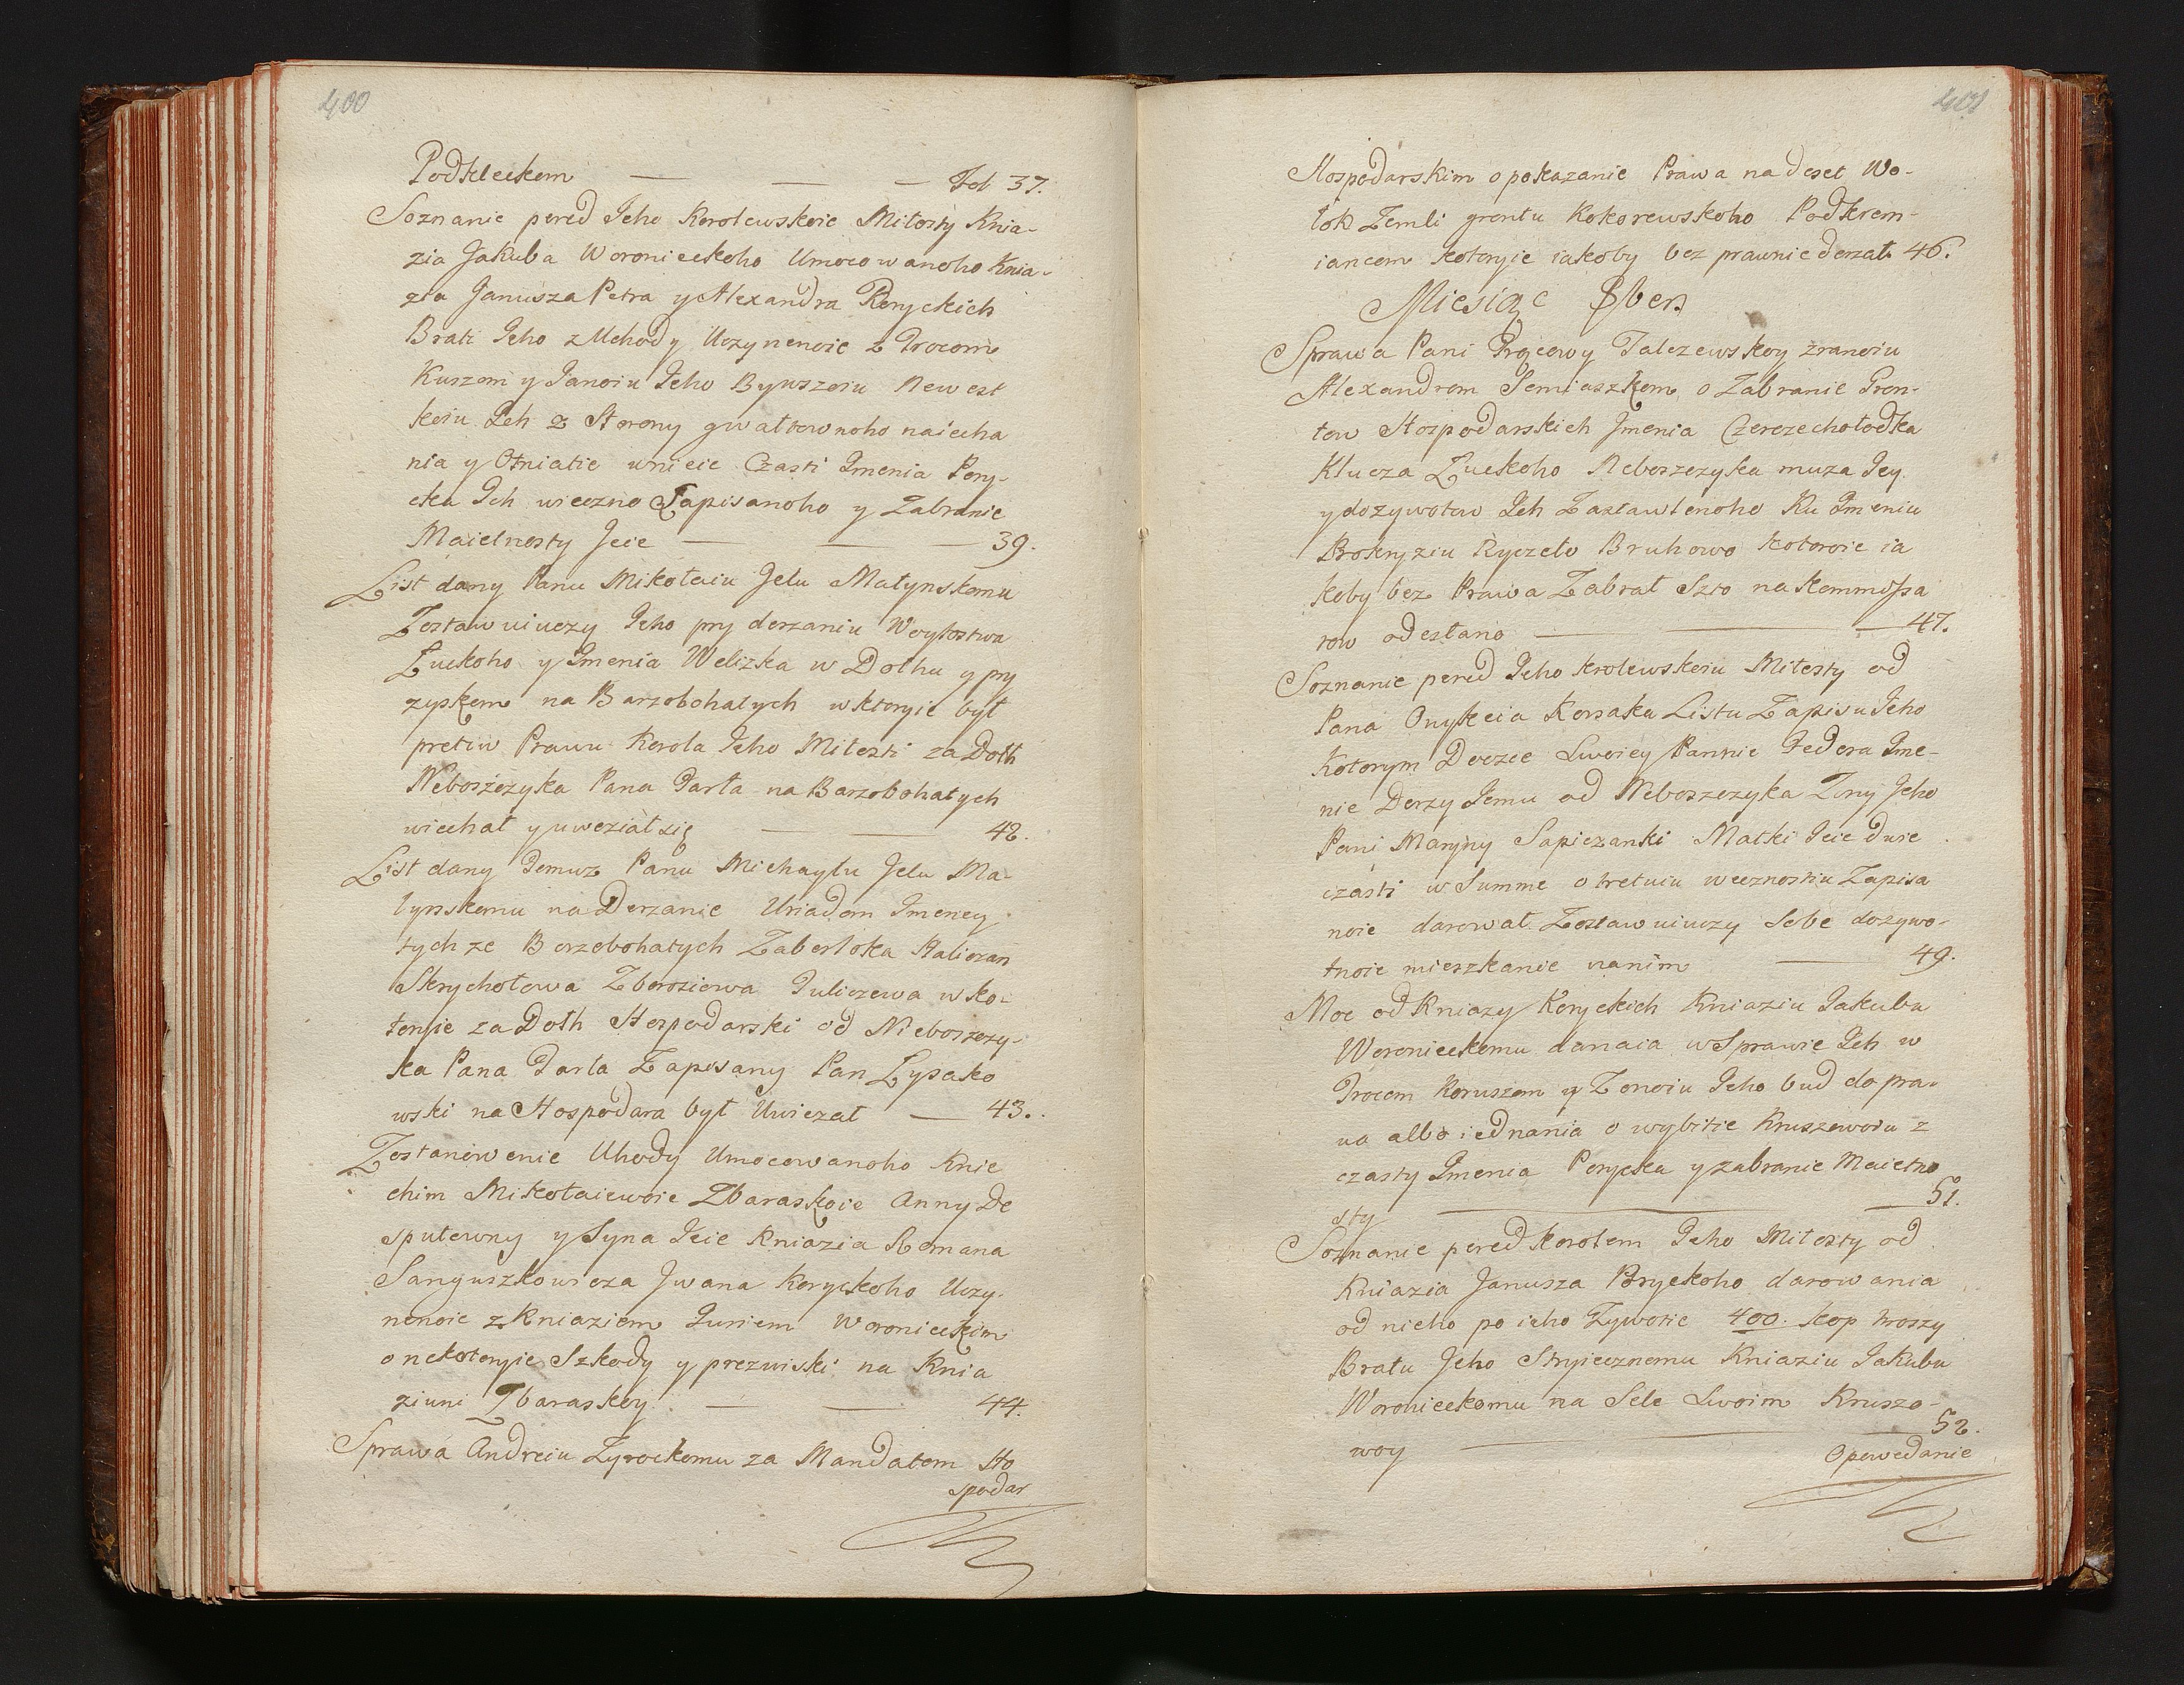 400
Podkleckom — — — Fol 37.
Soznanie pered Jeho Korolewskoie Miłosty Knia-
zia Jakuba Woronieckoho Umocowanoho Knia-
zia Janusza Petra y Alexandra Poryckich
Brati Jeho z Uchody Uczynenoie z Procom
Kuszom y Panoiu Jeho Bywszoiu Newest
koiu Jch z Storony gwałtownoho naiecha
nia y Otniatie wnieie Czasti Jmenia Pory-
cka Jch wieczno Zapisanoho y Zabranie
Maietnosty Jeie — — 39.
List dany Panu Mikołaiu Jelu Małynskomu
Zostawuiuczy Jeho pry derzaniu Woytostwa
Łuckoho y Jmenia Welizka w Dołhu y pry
zyskom na Barzobohatych w kotoryie był
pretiw Prawu Korola Jeho Miłosti za Dołh
Neboszczyka Pana Parła na Barzobohatych
wiechał y uweziat się — — 42.
List dany Jemuz Panu Michayłu Jelu Ma-
łynskomu na Derzanie Uriadom Jmeney
tych ze Borzobohatych Zaborłoka Haliczan
Skrychołowa Zboroziewa Puliczewa w ko-
toryie za Dołh Hospodarski od Nieboszczy-
ka Pana Parła Zapisany Pan Łysako
wski na Hospodara był Uwiezał — 43.
Zostanowenie Uhody Umocowanoho Knie
chini Mikołaiewoie Zbaraskoie Anny De
sputowny y Syna Jeie Kniazia Romana
Sanguszkowicza Jwana Koryckoho Uczy-
nenoie z Kniaziem Juriem Woronieckim
o nekotoryie Szkody y prezwiski na Knia
ziuni Zbaraskoy — — 44.
Sprawa Andreiu Zyrockomu za Mandatom Ho
spodar
401
Hospodarskim o pokazanie Prawa na deset Wo-
łok Zemli gruntu Kokorewskoho Podkrem-
iancom kotoryie iakoby bez prawnie derzał 46.
Miesiąc 8bert
Sprawa Pani Procowy Falczewskoy z Panoiu
Alexandrom Semiaszkom o Zabranie Gron-
tow Hospodarskich Jmenia Czerczechołodka
Klucza Łuckoho Neboszczyka muza Jey
y dozywotow Jch Zastawlenoho Ku Jmeniu
Brokryziu Ryczeło Bruhowo kotoroie ia
koby bez Prawa Zabrał Szto na Kommissa
row odesłano — — 47.
Soznanie pered Jeho krolewskoiu Miłosty od
Pana Onykeia Korsaka Listu Zapisu Jeho
Kotorym Doczce Swoiey Pannie Fedora Jme-
nie Derzy Jemu od Neboszczyka Zony Jeho
Pani Maryny Sapiezanki Matki Jeie dwie
czasti w Summe o tretuiu wecznostiu Zapisa
noie darował Zostawuiuczy Sobe dozywo-
tnoie mieszkanie nanim — 49.
Moc od Kniazy Koryckich Kniaziu Jakubu
Woronieckomu danaia w Sprawie Jch w
Procom Koruszom y Zonoiu Jeho bud do pra-
wa albo iednania o wybitie Kruszowoiu z
czasty Jmenia Porycka y zabranie Maietno
sty — — 51.
Soznanie pered Korolem Jeho Miłosty od
Kniazia Janusza Poryckoho darowania
od nieho po ieho Zywotie 400. kop hroszy
Bratu Jeho Stryiecznomu Kniaziu Jakubu
Woronieckomu na Sele Swoim Kruszo-
woy — — 52.
Opowedanie